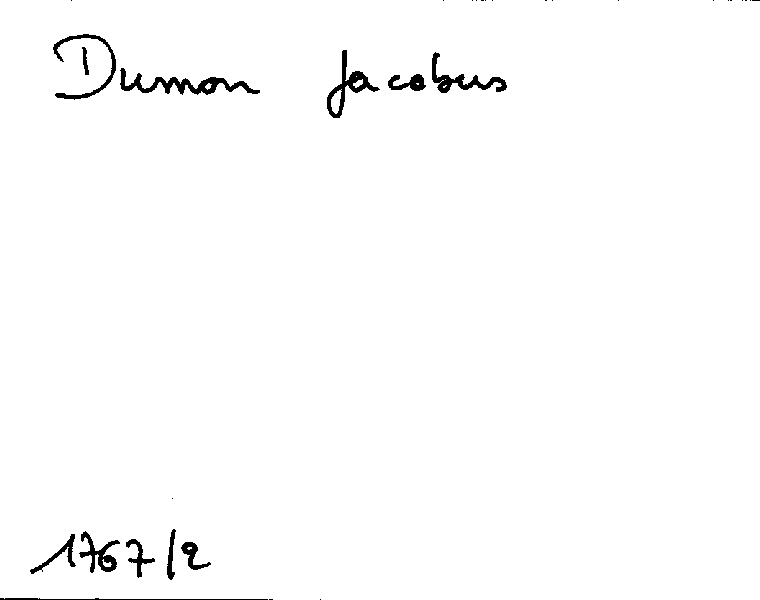 Dumon Jacobus
1767/2